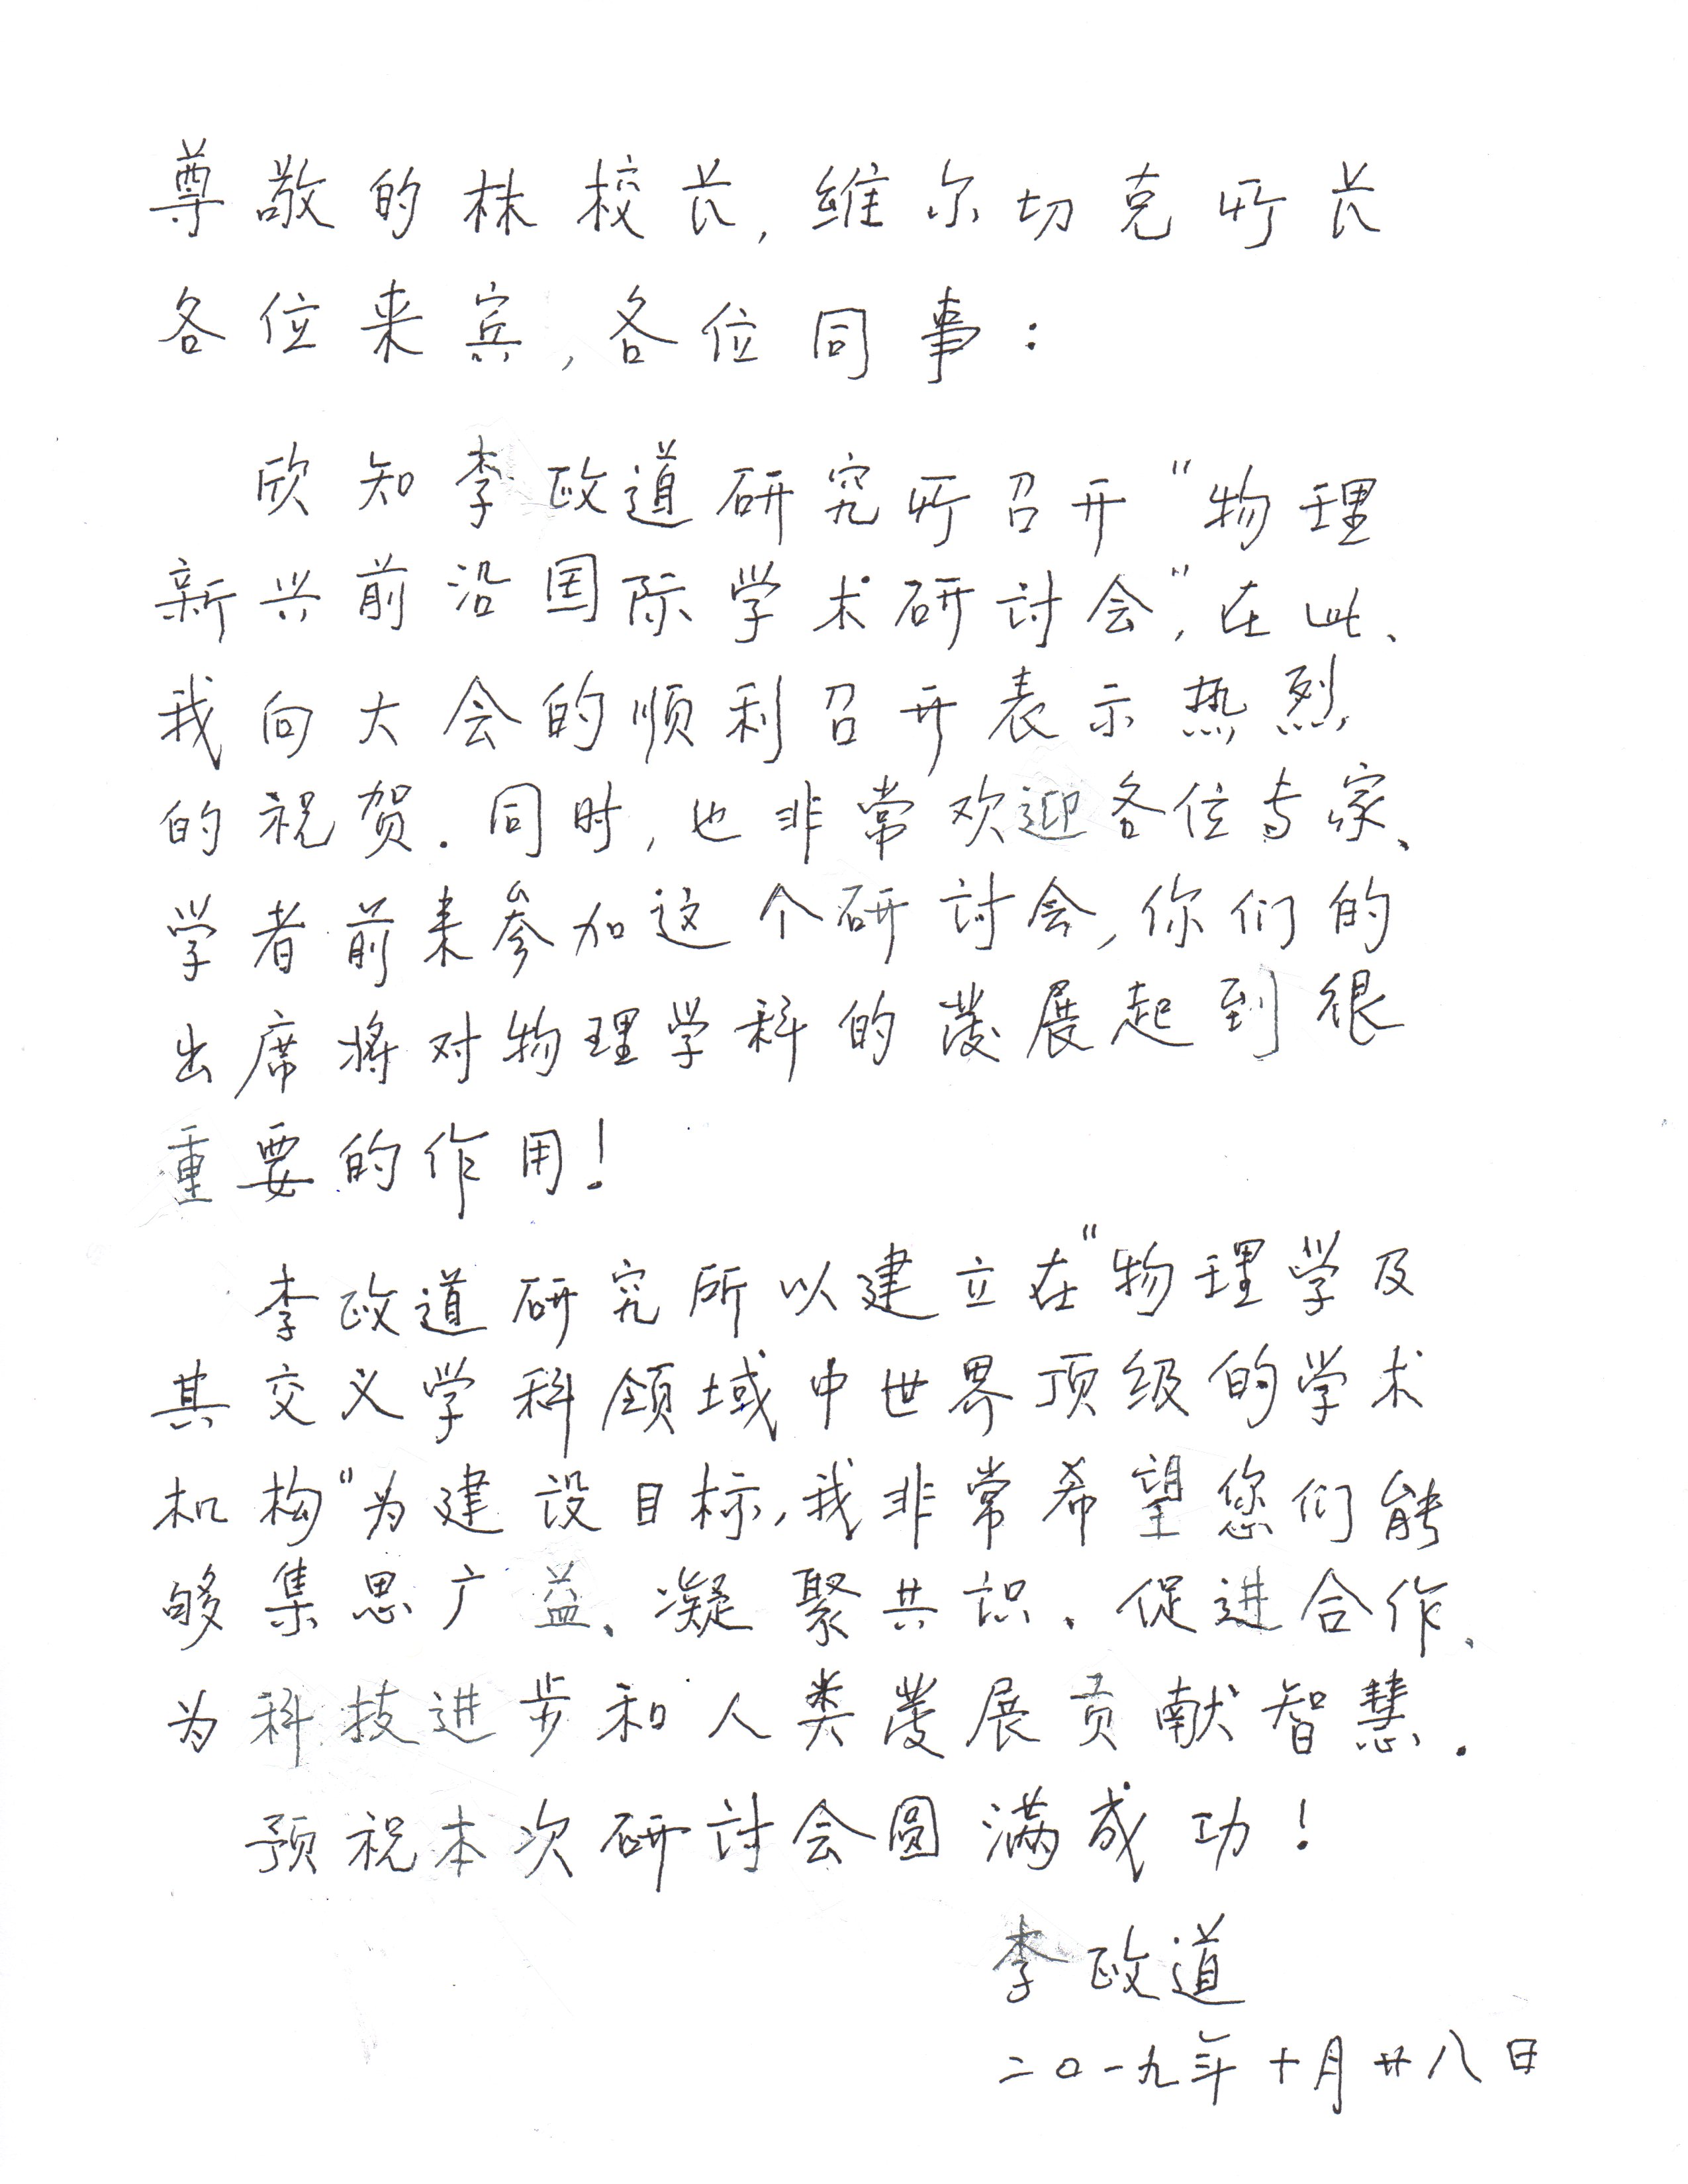 尊敬的林校长,维尔切克所长
各位来宾,各位同事:
欣知李政道研究所召开"物理
新兴前沿国际学术研讨会",在此、
我向大会的顺利召开表示热烈
的祝贺.同时,也非常欢迎各位专家、
学者前来参加这个研讨会,你们的
出席将对物理学科的发展起到很
重要的作用!
李政道研究所以建立在"物理学及
其交义学科领域中世界顶级的学术
机构"为建设目标,我非常希望您们能
够集思广益、凝聚共识、促进合作、
为科技进步和人类发展贡献智慧.
预祝本次研讨会圆满成功!
李政道
二〇一九年十月廿八日